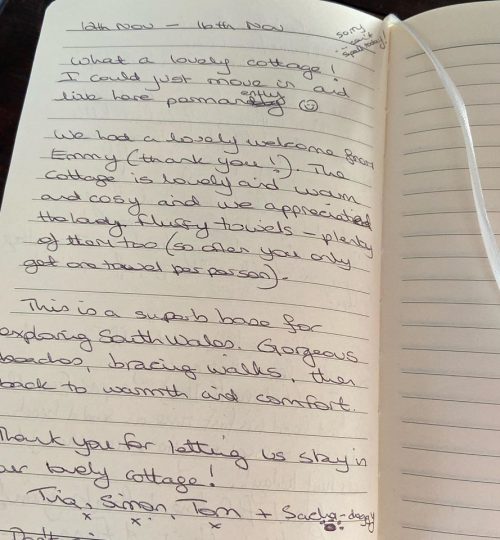 12th Nov – 16th Nov
sorry
can't
spell today!
What a lovely cottage!
I could just move in and
live here permanently ☺
We had a lovely welcome from
Emmy (thank you!). The
cottage is lovely and warm
and cosy and we appreciated
the lovely fluffy towels – plenty
of them too (so often you only
get one towel per person).
This is a superb base for
exploring South Wales. Gorgeous
beaches, bracing walks, then
back to warmth and comfort.
Thank you for letting us stay in
our lovely cottage!
Tria, Simon, Tom + Sacha-doggy
x x x